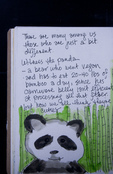 There are many among us
those who are just a bit
different.
Witness the panda
- a bear who went vegan
- and has to eat 20-40 lbs of
bamboo a day, since his
carnivore belly isn't efficient
at processing all that